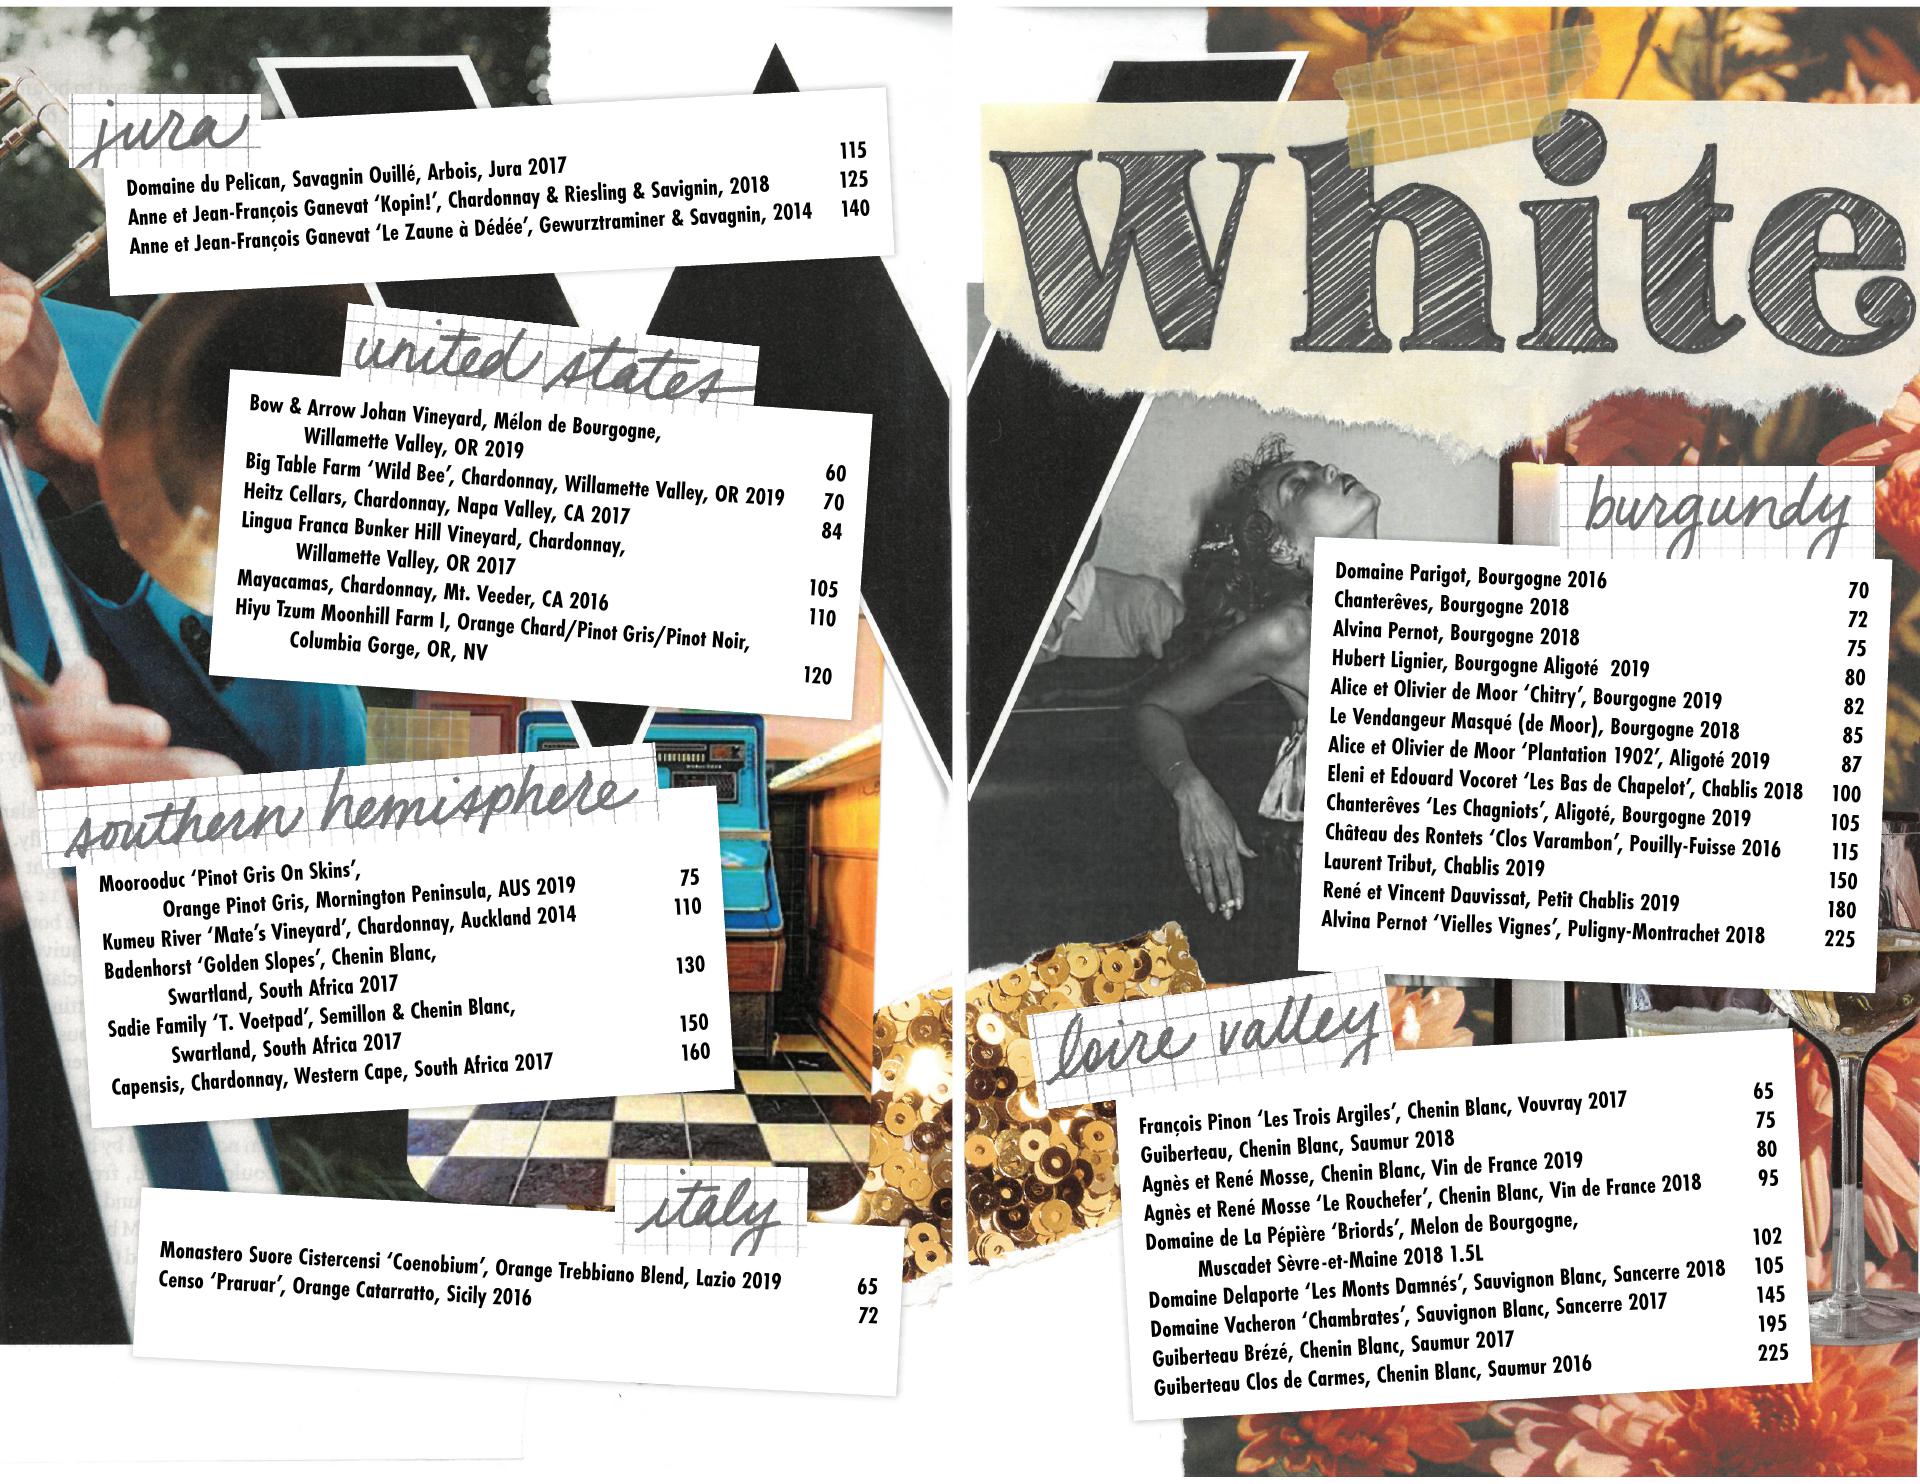 jura
Domaine du Pelican, Savagnin Ouillé, Arbois, Jura 2017 115
Anne et Jean-François Ganevat ‘Kopin!’, Chardonnay & Riesling & Savignin, 2018 125
Anne et Jean-François Ganevat ‘Le Zaune à Dédée’, Gewurztraminer & Savagnin, 2014 140
united states
Bow & Arrow Johan Vineyard, Mélon de Bourgogne,
Willamette Valley, OR 2019 60
Big Table Farm ‘Wild Bee’, Chardonnay, Willamette Valley, OR 2019 70
Heitz Cellars, Chardonnay, Napa Valley, CA 2017 84
Lingua Franca Bunker Hill Vineyard, Chardonnay,
Willamette Valley, OR 2017 105
Mayacamas, Chardonnay, Mt. Veeder, CA 2016 110
Hiyu Tzum Moonhill Farm I, Orange Chard/Pinot Gris/Pinot Noir,
Columbia Gorge, OR, NV 120
southern hemisphere
Moorooduc ‘Pinot Gris On Skins’,
Orange Pinot Gris, Mornington Peninsula, AUS 2019 75
Kumeu River ‘Mate’s Vineyard’, Chardonnay, Auckland 2014 110
Badenhorst ‘Golden Slopes’, Chenin Blanc,
Swartland, South Africa 2017 130
Sadie Family ‘T. Voetpad’, Semillon & Chenin Blanc,
Swartland, South Africa 2017 150
Capensis, Chardonnay, Western Cape, South Africa 2017 160
italy
Monastero Suore Cistercensi ‘Coenobium’, Orange Trebbiano Blend, Lazio 2019 65
Censo ‘Praruar’, Orange Catarratto, Sicily 2016 72
White
burgundy
Domaine Parigot, Bourgogne 2016 70
Chanterêves, Bourgogne 2018 72
Alvina Pernot, Bourgogne 2018 75
Hubert Lignier, Bourgogne Aligoté 2019 80
Alice et Olivier de Moor ‘Chitry’, Bourgogne 2019 82
Le Vendangeur Masqué (de Moor), Bourgogne 2018 85
Alice et Olivier de Moor ‘Plantation 1902’, Aligoté 2019 87
Eleni et Edouard Vocoret ‘Les Bas de Chapelot’, Chablis 2018 100
Chanterêves ‘Les Chagniots’, Aligoté, Bourgogne 2019 105
Château des Rontets ‘Clos Varambon’, Pouilly-Fuisse 2016 115
Laurent Tribut, Chablis 2019 150
René et Vincent Dauvissat, Petit Chablis 2019 180
Alvina Pernot ‘Vielles Vignes’, Puligny-Montrachet 2018 225
loire valley
François Pinon ‘Les Trois Argiles’, Chenin Blanc, Vouvray 2017 65
Guiberteau, Chenin Blanc, Saumur 2018 75
Agnès et René Mosse, Chenin Blanc, Vin de France 2019 80
Agnès et René Mosse ‘Le Rouchefer’, Chenin Blanc, Vin de France 2018 95
Domaine de La Pépière ‘Briords’, Melon de Bourgogne,
Muscadet Sèvre-et-Maine 2018 1.5L 102
Domaine Delaporte ‘Les Monts Damnés’, Sauvignon Blanc, Sancerre 2018 105
Domaine Vacheron ‘Chambrates’, Sauvignon Blanc, Sancerre 2017 145
Guiberteau Brézé, Chenin Blanc, Saumur 2017 195
Guiberteau Clos de Carmes, Chenin Blanc, Saumur 2016 225